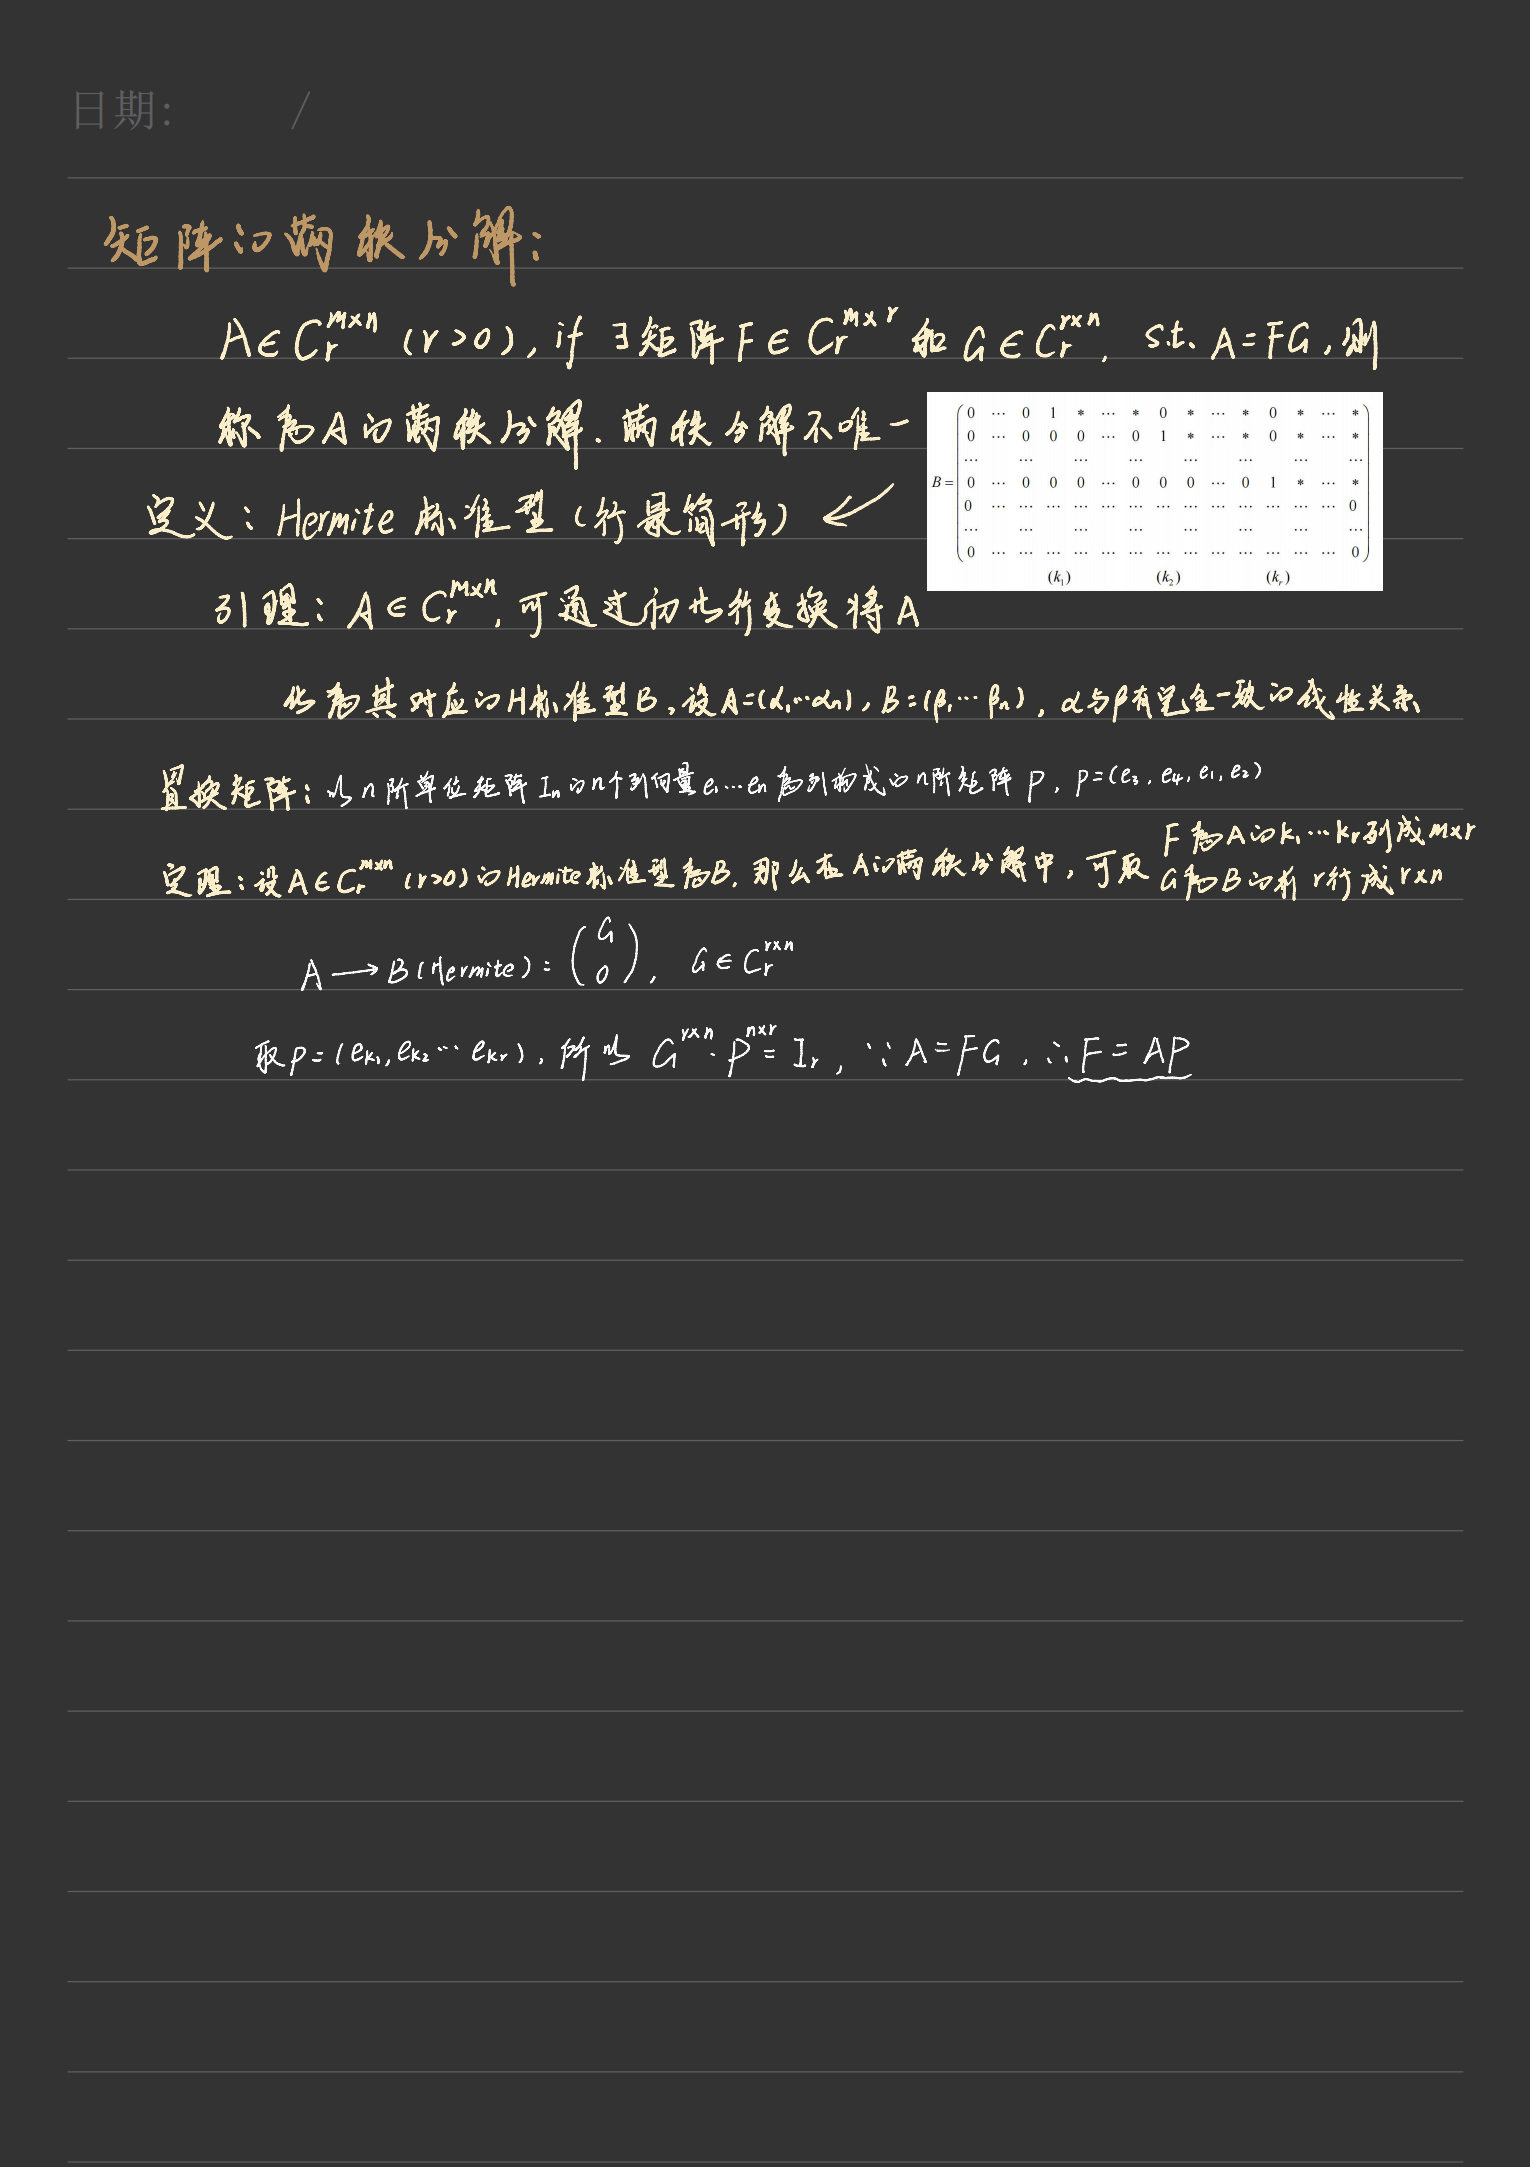 日期: /
矩阵的满秩分解:
A∈C_r^{m×n} (r>0), if ∃矩阵F∈C_r^{m×r} 和 G∈C_r^{r×n}, s.t. A=FG, 则
称为A的满秩分解. 满秩分解不唯一
B= 0 ⋯ 0 1 * ⋯ * 0 * ⋯ * 0 * ⋯ *
0 ⋯ 0 0 0 ⋯ 0 1 * ⋯ * 0 * ⋯ *
⋯ ⋯ ⋯ ⋯ ⋯ ⋯ ⋯ ⋯
0 ⋯ 0 0 0 ⋯ 0 0 0 ⋯ 0 1 * ⋯ *
0 ⋯ ⋯ ⋯ ⋯ ⋯ ⋯ ⋯ ⋯ ⋯ ⋯ ⋯ ⋯ 0
⋯ ⋯ ⋯ ⋯ ⋯ ⋯ ⋯ ⋯
0 ⋯ ⋯ ⋯ ⋯ ⋯ ⋯ ⋯ ⋯ ⋯ ⋯ ⋯ ⋯ 0
(k₁) (k₂) (kᵣ)
定义: Hermite 标准型 (行最简形) ↙
引理: A∈C_r^{m×n}, 可通过初等行变换将A
化为其对应的H标准型B, 设A=(α₁⋯αn), B=(β₁⋯βn), α与β有完全一致的线性关系
置换矩阵: 以n阶单位矩阵 In的n个列向量e₁⋯en为列构成的n阶矩阵 P, P=(e₃, e₄, e₁, e₂)
定理: 设A∈C_r^{m×n} (r>0) 的Hermite标准型为B, 那么在A的满秩分解中, 可取 F为A的k₁⋯kr列成m×r
G为B的前r行成r×n
A → B(Hermite) = (G 0), G∈C_r^{r×n}
取P=(e_{k₁}, e_{k₂}⋯e_{kr}), 所以 G^{r×n}·P^{n×r} = Ir, ∵ A=FG, ∴ F=AP